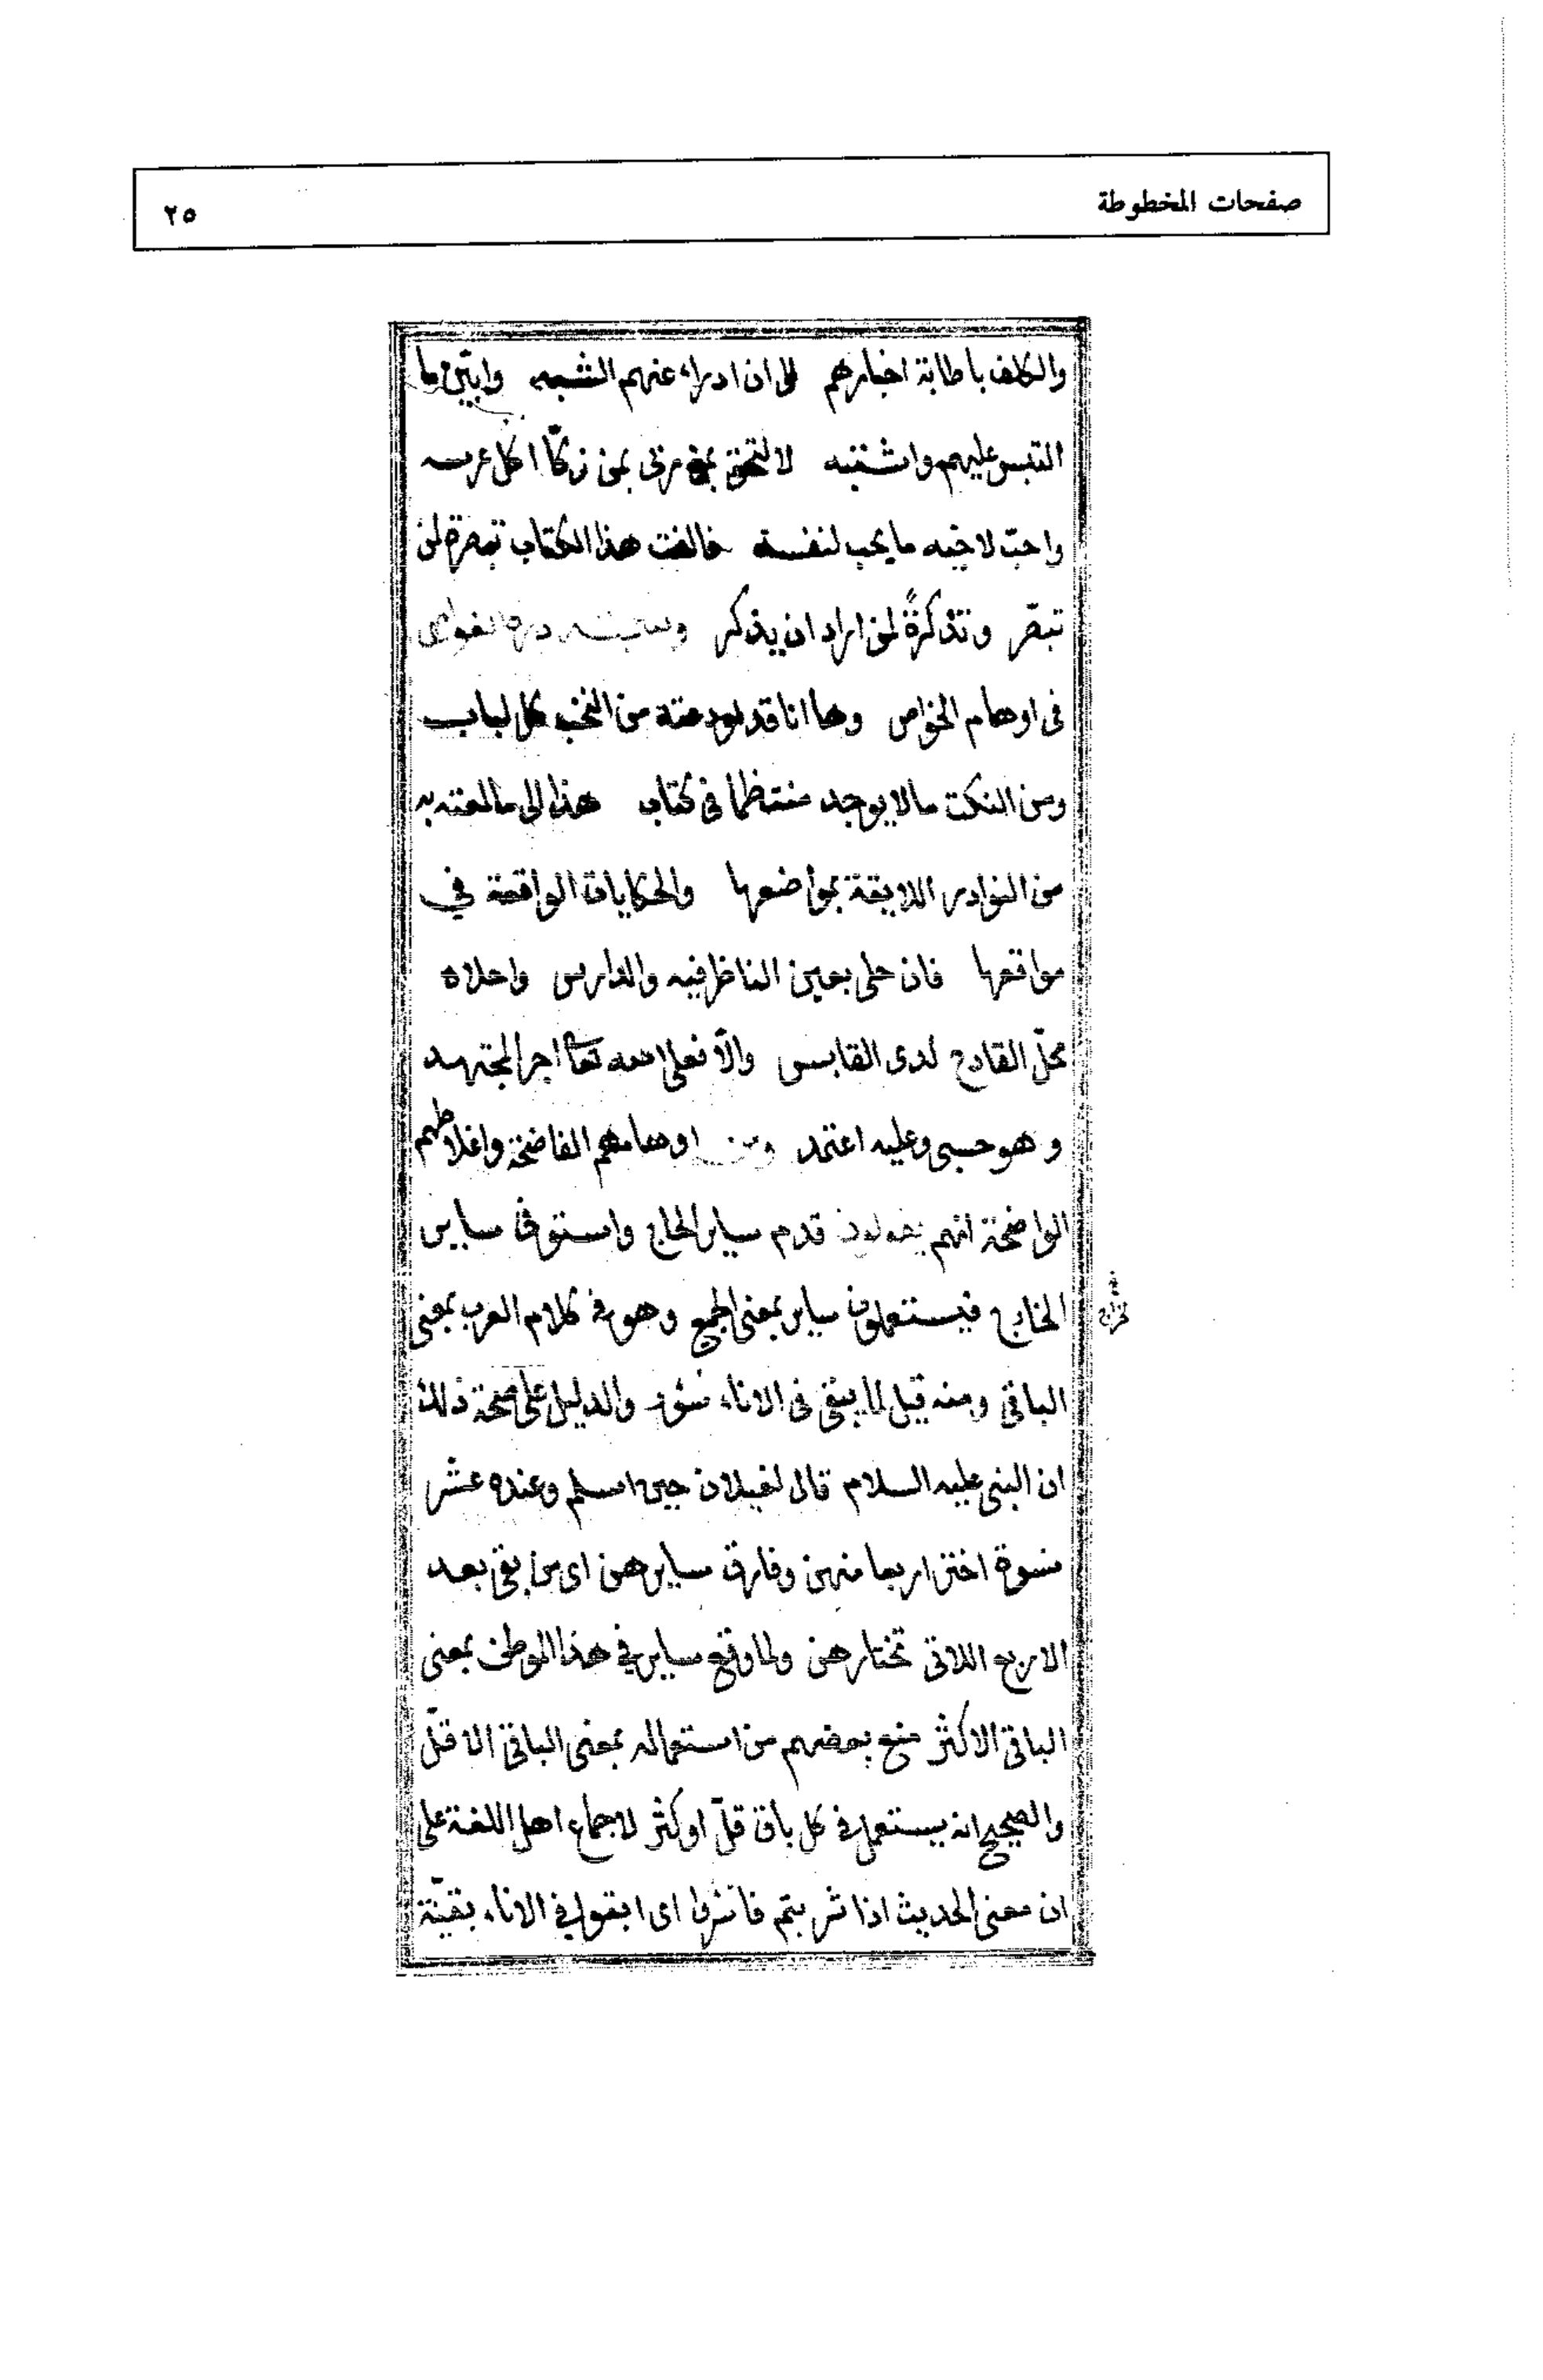 صفحات المخطوطة
٢٥
والكلف باطابة اخبارهم الى ان ادراء عنهم الشبه وابيّن ما
التبس عليهم واشتبه لالتحق بمن زكّا اكل غرسه
واحبّ لاخيه ما يحب لنفسه فالفت هذا الكتاب تبصرة لمن
تبصّر وتذكرةً لمن اراد ان يذكر وسميته درة الغواص
فى اوهام الخواص وها انا قد اودعته من النخب كل لباب
ومن النكت ما لا يوجد منتظما فى كتاب هذا الى ما لمعته به
من النوادر اللايقة بمواضعها والحكايات الواقعة في
مواقعها فان حلى بعين الناظر فيه والدارس واحلاه
محلّ القادح لدى القابس والّا فعلى الله تعا اجر المجتهد
وهو حسبى وعليه اعتمد ومن اوهامهم الفاضحة واغلاطهم
الواضحة انهم يقولون قدم ساير الحاج واستوفى ساير
الخارج فيستعملون ساير بمعنى الجميع وهو فى كلام العرب بمعنى
الخراج
الباقى ومنه قيل لما يبقى فى الاناء سؤر والدليل على صحة ذلك
ان النبى عليه السلام قال لغيلان حين اسلم وعنده عشر
نسوة اختر اربعا منهن وفارق سايرهن اى من بقى بعد
الاربع اللاتى تختارهن ولما وقع ساير فى هذا الموطن بمعنى
الباقى الاكثر منع بعضهم من استعماله بمعنى الباقى الاقلّ
والصحيح انه يستعمل فى كل باق قلّ او كثر لاجماع اهل اللغة على
ان معنى الحديث اذا شربتم فاسئروا اى ابقوا فى الاناء بقيّة